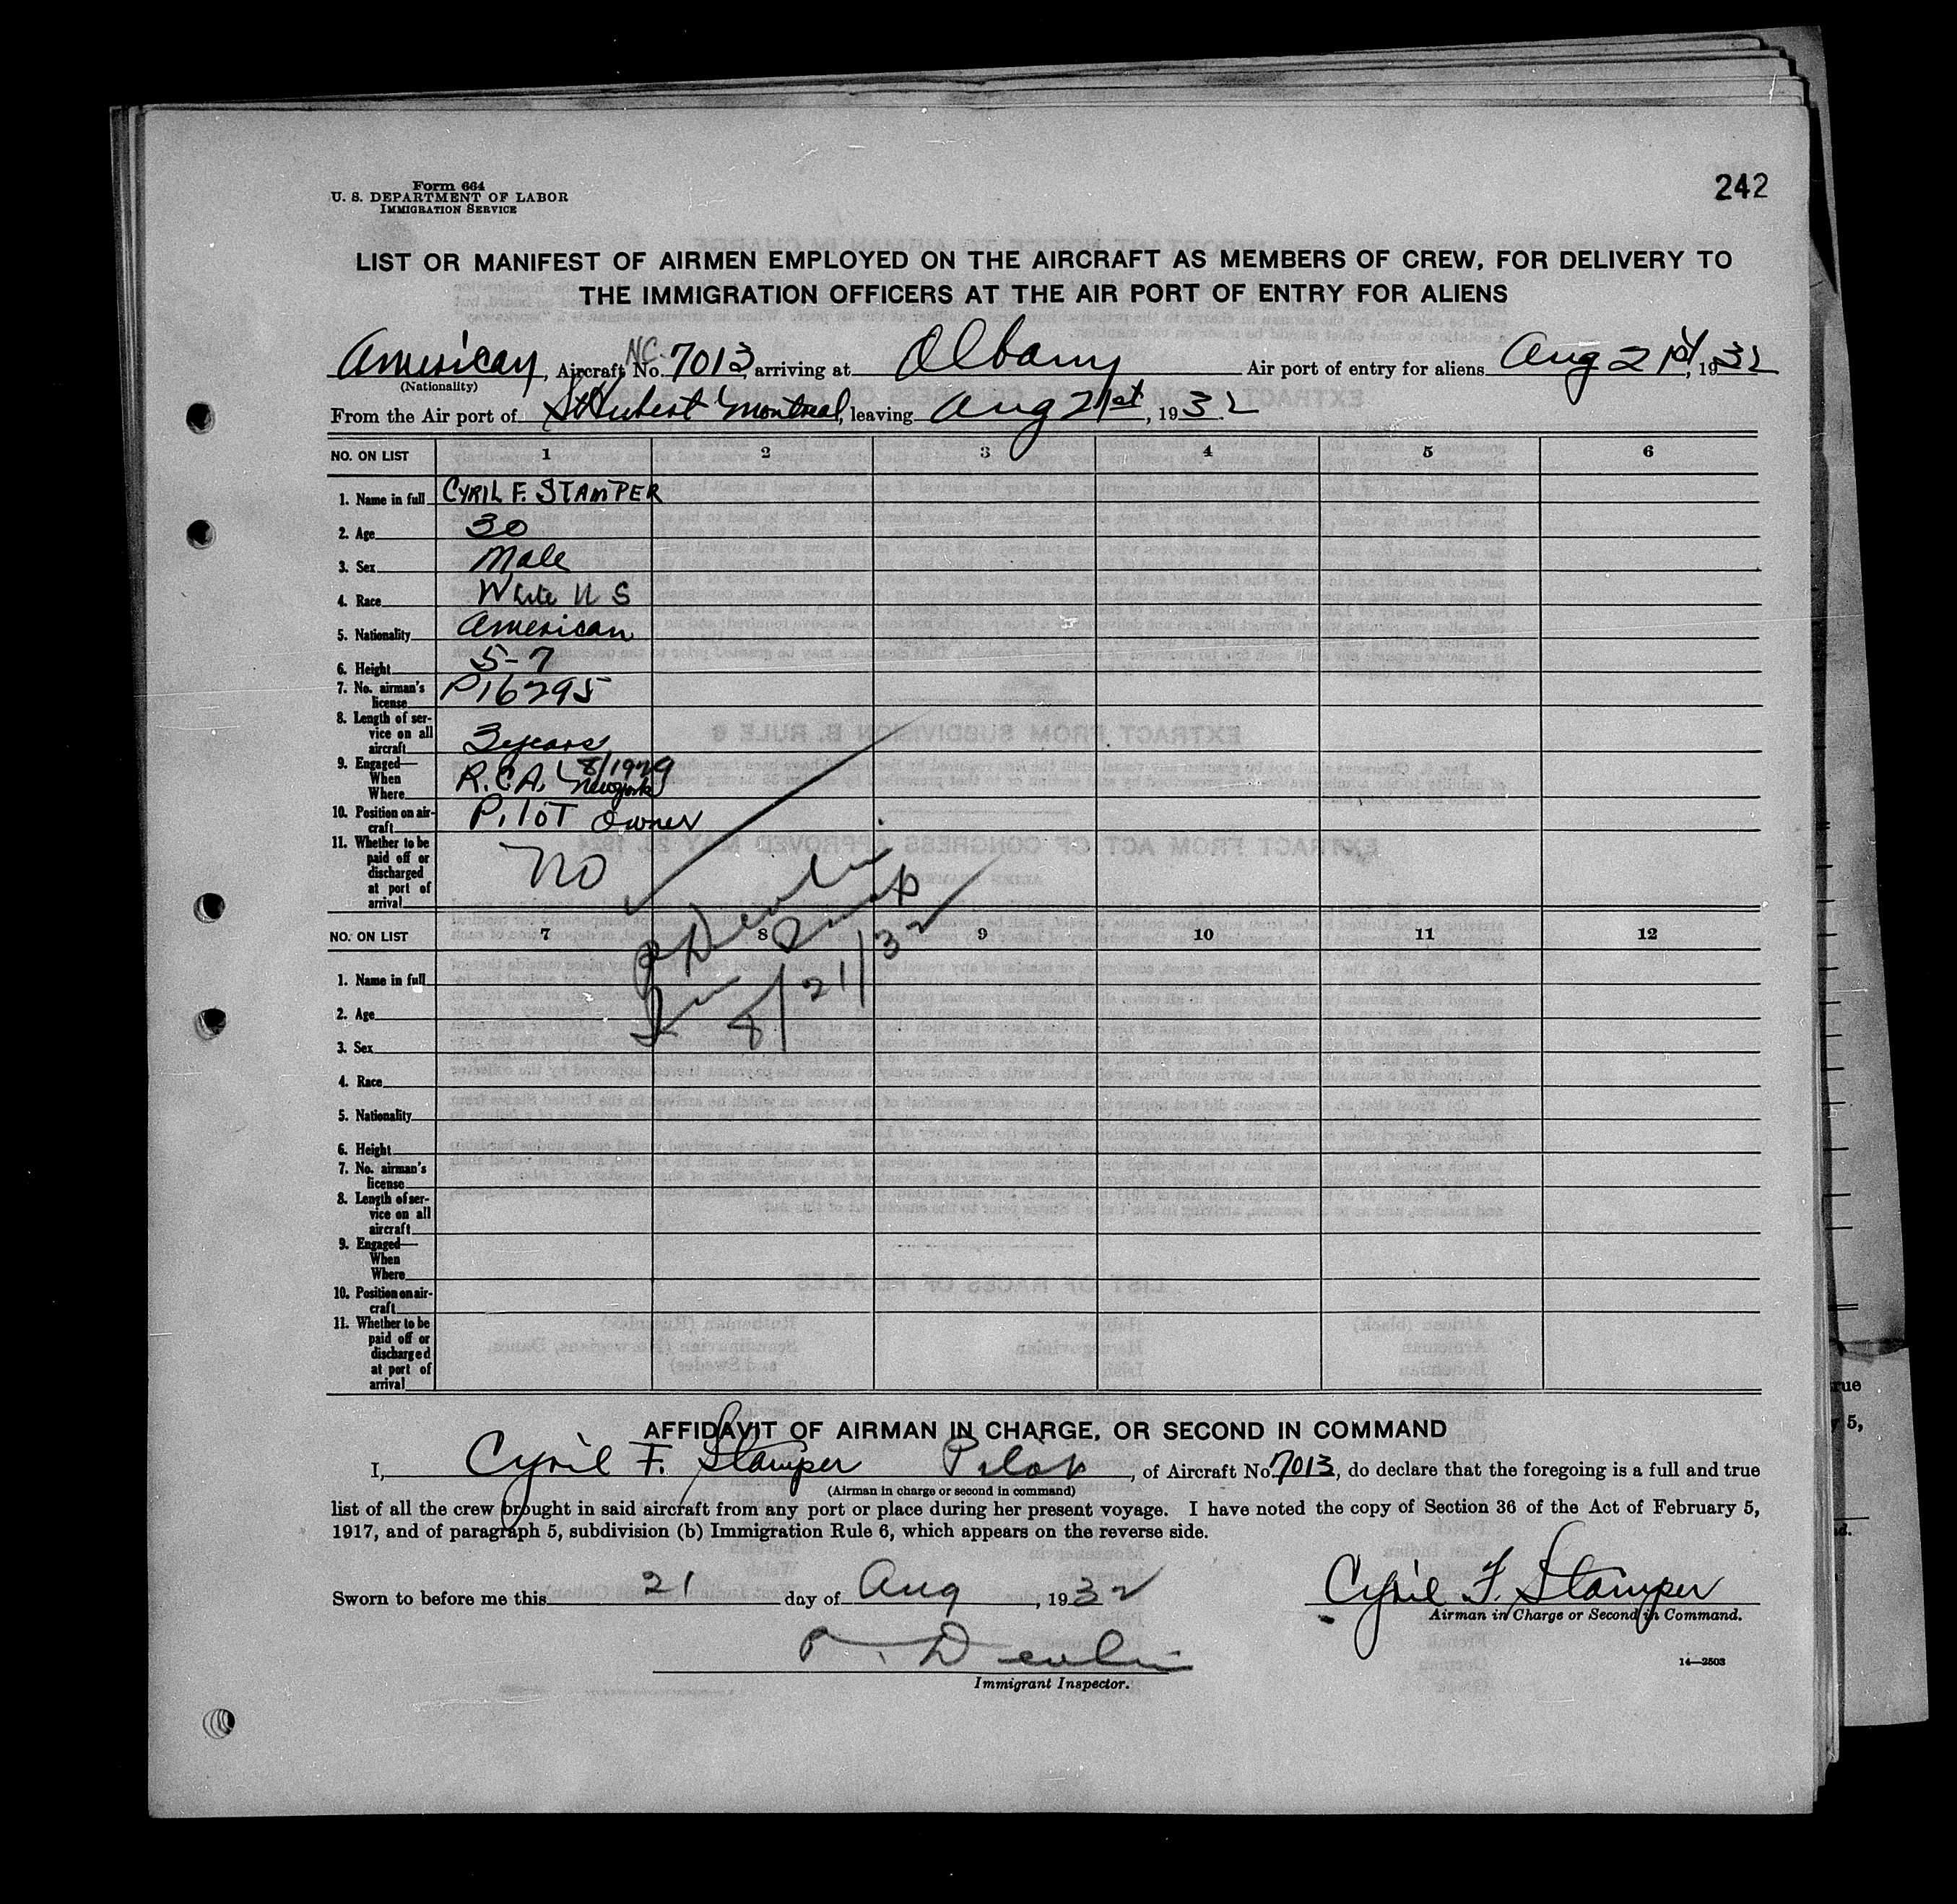 Form 664
U. S. DEPARTMENT OF LABOR
IMMIGRATION SERVICE
242
LIST OR MANIFEST OF AIRMEN EMPLOYED ON THE AIRCRAFT AS MEMBERS OF CREW, FOR DELIVERY TO
THE IMMIGRATION OFFICERS AT THE AIR PORT OF ENTRY FOR ALIENS
American, Aircraft No. NC 7013, arriving at Albany Air port of entry for aliens Aug 21st, 1932
(Nationality)
From the Air port of St Hubert Montreal, leaving Aug 21st, 1932.
NO. ON LIST 1 2 3 4 5 6
1. Name in full CYRIL F. STAMPER
2. Age 30
3. Sex Male
4. Race White U S
5. Nationality American
6. Height 5-7
7. No. airman's
license P16295
8. Length of ser-
vice on all
aircraft 3 years
9. Engaged—
When 8/1929
Where R.C.A. New York
10. Position on air-
craft PILOT owner
11. Whether to be
paid off or
discharged
at port of
arrival No
Devlin
Insp
8/21/32
NO. ON LIST 7 8 9 10 11 12
1. Name in full
2. Age
3. Sex
4. Race
5. Nationality
6. Height
7. No. airman's
license
8. Length of ser-
vice on all
aircraft
9. Engaged—
When
Where
10. Position on air-
craft
11. Whether to be
paid off or
discharged
at port of
arrival
AFFIDAVIT OF AIRMAN IN CHARGE, OR SECOND IN COMMAND
I, Cyril F. Stamper Pilot, of Aircraft No. 7013, do declare that the foregoing is a full and true
(Airman in charge or second in command)
list of all the crew brought in said aircraft from any port or place during her present voyage. I have noted the copy of Section 36 of the Act of February 5,
1917, and of paragraph 5, subdivision (b) Immigration Rule 6, which appears on the reverse side.
Sworn to before me this 21 day of Aug, 1932
Cyril F. Stamper
Airman in Charge or Second in Command.
Devlin
Immigrant Inspector.
14—2503